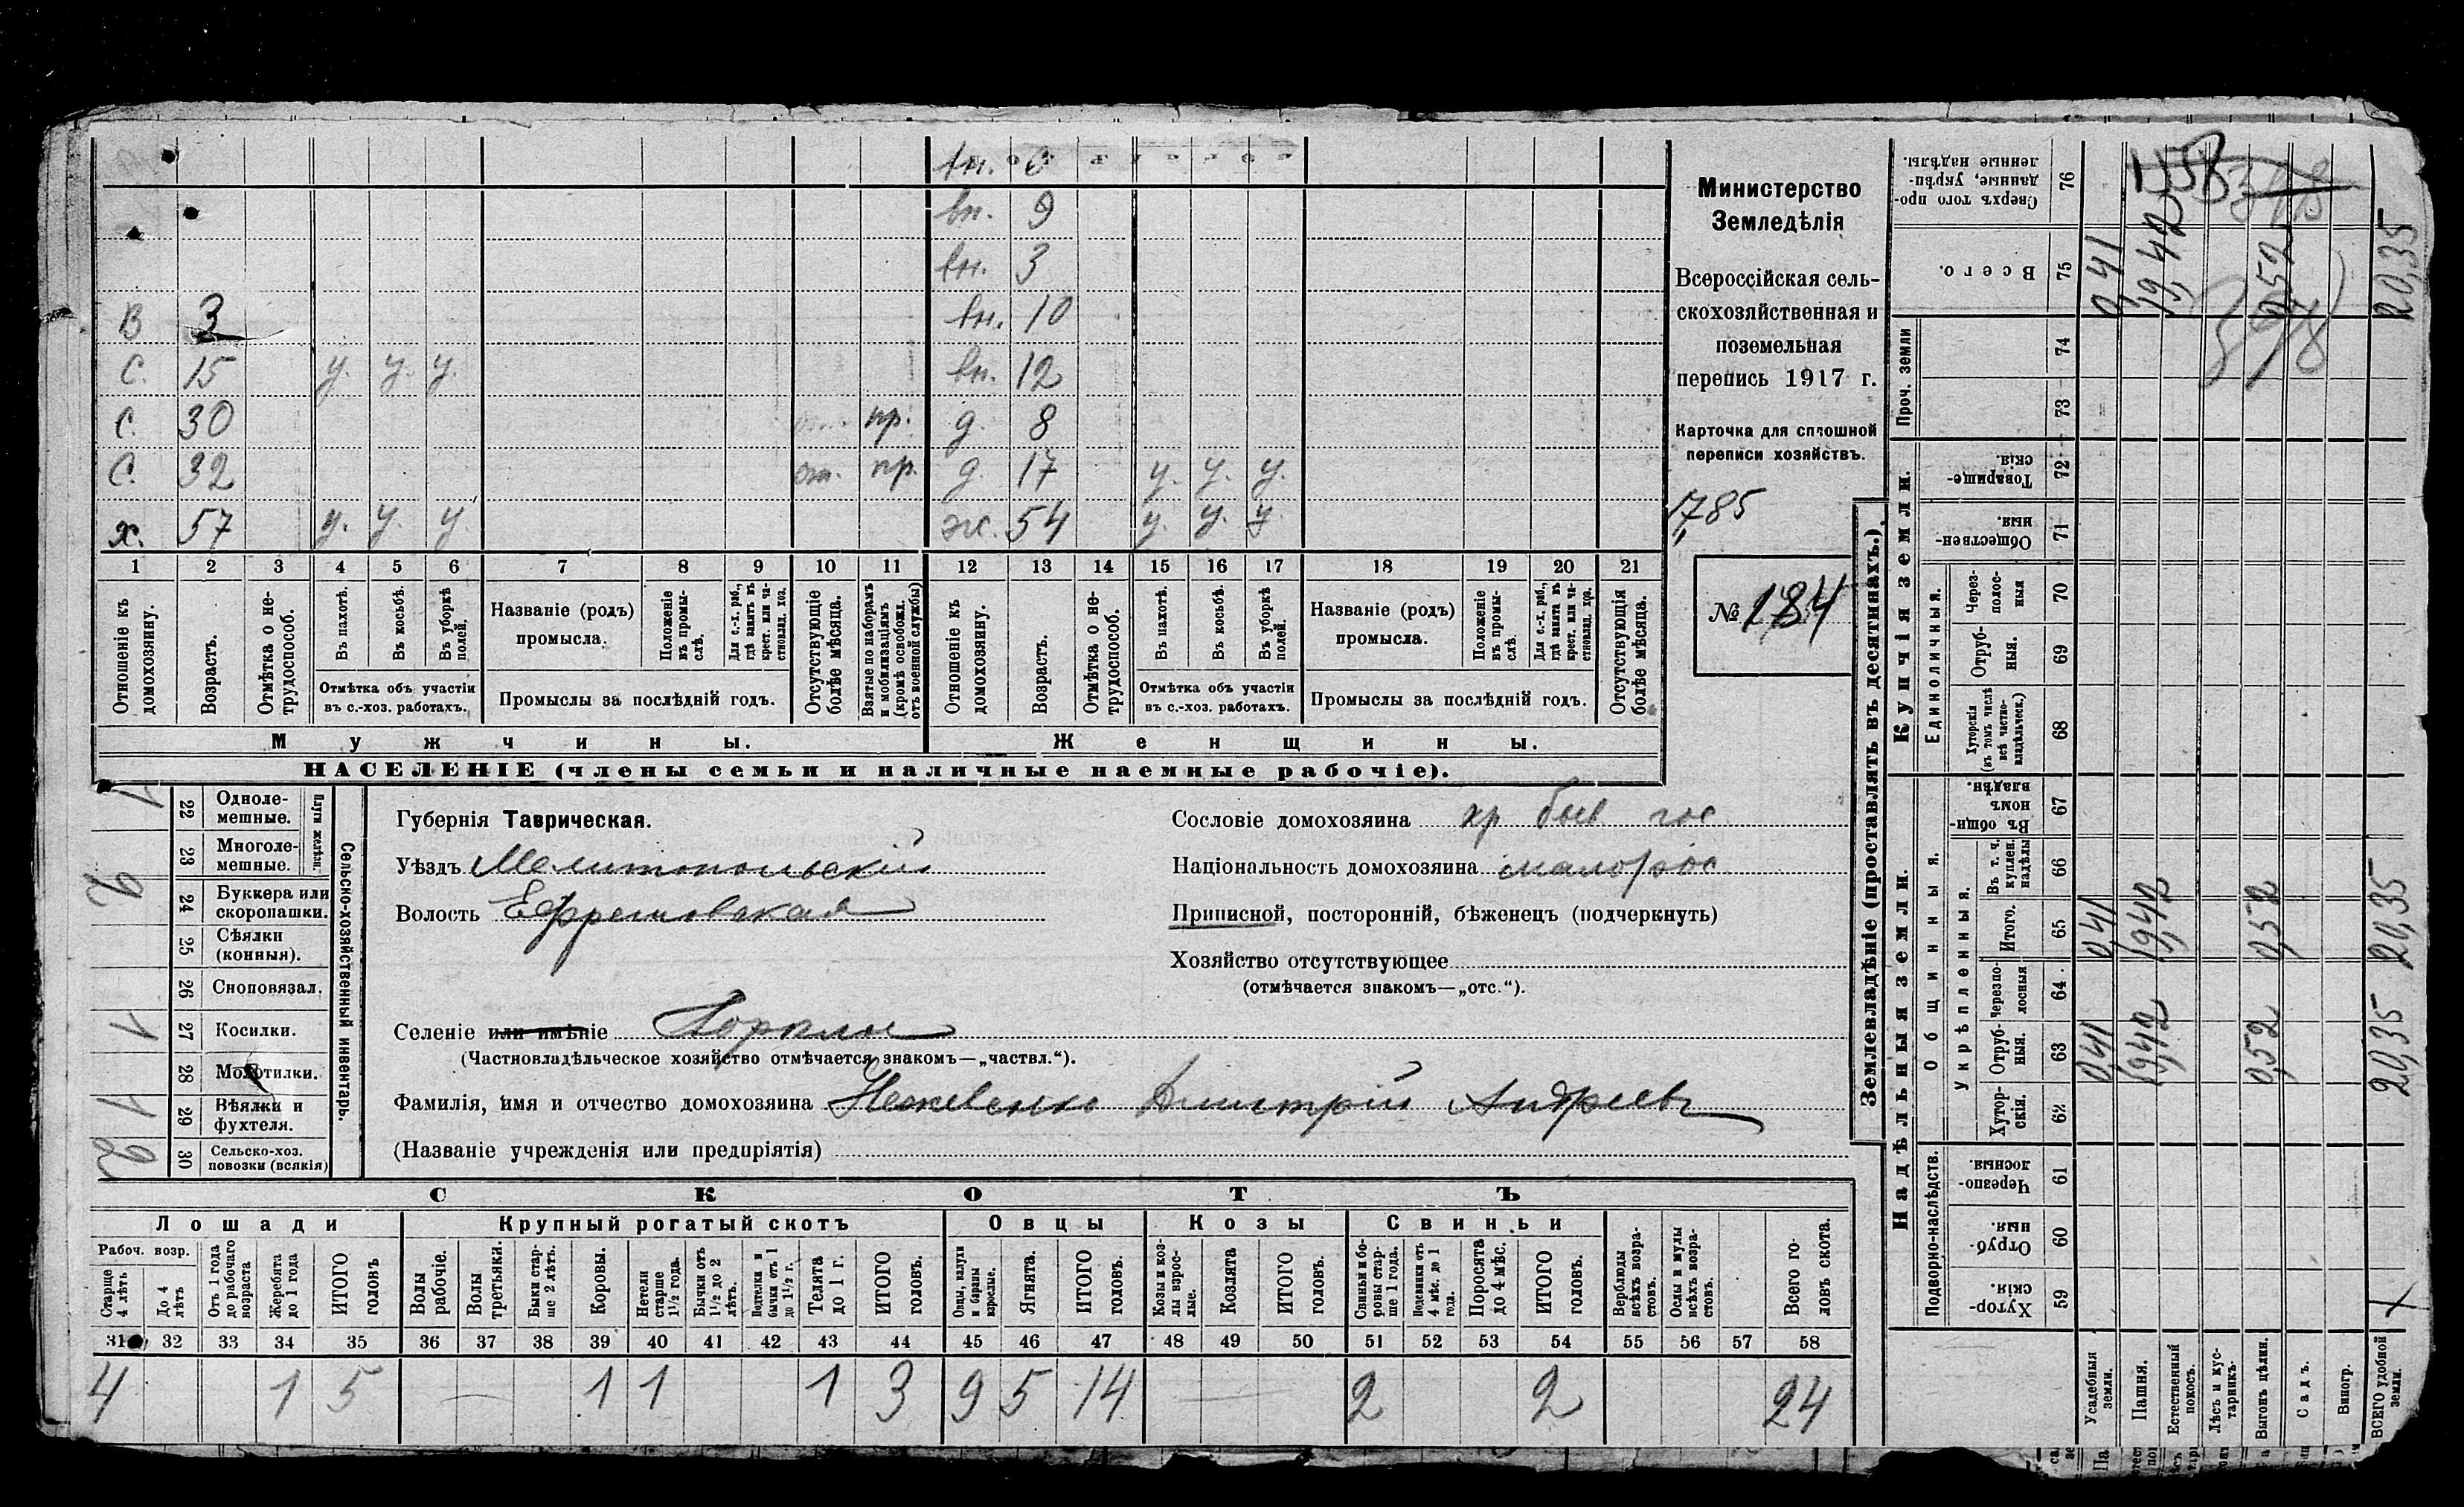 вн. 6
вн. 9
вн. 3
В 3 вн. 10
С. 15 у. у. у. вн. 12
С. 30 пр. д. 8
С. 32 от. пр. д. 17 у. у. у.
х. 57 у. у. у. ж. 54 у. у. у.
1 2 3 4 5 6 7 8 9 10 11 12 13 14 15 16 17 18 19 20 21
Отношеніе къ домохозяину.
Возрастъ.
Отмѣтка о не-трудоспособ.
Въ пахотѣ.
Въ косьбѣ.
Въ уборкѣ полей.
Отмѣтка объ участіи
въ с.-хоз. работахъ.
Названіе (родъ)
промысла.
Положеніе въ промы-слѣ.
Для с.-х. раб., гдѣ занятъ въ крест. или ча-стновлад. хоз.
Промыслы за послѣдній годъ.
Отсутствующіе болѣе мѣсяца.
Взятые по наборамъ и мобилизаціямъ (кромѣ освобожд. отъ военной службы)
Отношеніе къ домохозяину.
Возрастъ.
Отмѣтка о не-трудоспособ.
Въ пахотѣ.
Въ косьбѣ.
Въ уборкѣ полей.
Отмѣтка объ участіи
въ с.-хоз. работахъ.
Названіе (родъ)
промысла.
Положеніе въ промы-слѣ.
Для с.-х. раб., гдѣ занята въ крест. или ча-стновлад. хоз.
Промыслы за послѣдній годъ.
Отсутствующія болѣе мѣсяца.
Мужчины. Женщины.
НАСЕЛЕНІЕ (члены семьи и наличные наемные рабочіе).
Министерство
Земледѣлія
Всероссійская сель-
скохозяйственная и
поземельная
перепись 1917 г.
Карточка для сплошной
переписи хозяйствъ.
1785
№ 184
Сельско-хозяйственный инвентарь.
Плуги желѣзн.
22 Одноле-мешные. 1
23 Многоле-мешные.
24 Буккера или скоропашки. 2
25 Сѣялки (конныя).
26 Сноповязал.
27 Косилки. 1
28 Молотилки.
29 Вѣялки и фухтеля. 1
30 Сельско-хоз. повозки (всякія) 2
Губернія Таврическая.
Уѣздъ Мелитопольскій
Волость Ефремовская
Селеніе или имѣніе Горѣлое
(Частновладѣльческое хозяйство отмѣчается знакомъ—„частвл.“).
Сословіе домохозяина кр быв гос
Національность домохозяина малорос
Приписной, посторонній, бѣженецъ (подчеркнуть)
Хозяйство отсутствующее
(отмѣчается знакомъ—„отс.“).
Фамилія, имя и отчество домохозяина Дмитрій Андреевъ
(Названіе учрежденія или предпріятія)
СКОТЪ
Лошади Крупный рогатый скотъ Овцы Козы Свиньи
Рабоч. возр.
Старше 4 лѣтъ
До 4 лѣтъ
Отъ 1 года до рабочаго возраста
Жеребята до 1 года
ИТОГО головъ
Волы рабочіе.
Волы третьяки.
Быки стар-ше 2 лѣтъ.
Коровы.
Нетели старше 1½ года.
Бычки отъ 1½ до 2 лѣтъ.
Подтелки и бычки отъ 1 до 1½ г.
Телята до 1 г.
ИТОГО головъ.
Овцы, валухи и бараны взрослые.
Ягнята.
ИТОГО головъ.
Козы и коз-лы взрос-лые.
Козлята
ИТОГО головъ.
Свиньи и бо-ровы стар-ше 1 года.
Подсвинки отъ 4 мѣс. до 1 года.
Поросята до 4 мѣс.
ИТОГО головъ.
Верблюды всѣхъ возра-стовъ.
Ослы и мулы всѣхъ возра-стовъ.
Всего го-ловъ скота.
31 32 33 34 35 36 37 38 39 40 41 42 43 44 45 46 47 48 49 50 51 52 53 54 55 56 57 58
4 1 5 — 1 1 1 3 9 5 14 — 2 2 24
Землевладѣніе (проставлять въ десятинахъ.)
Надѣльныя земли. Купчія земли. Проч. земли
Подворно-наслѣдств.
Общинныя.
Укрѣпленныя.
Единоличныя.
59 Хутор-скія.
60 Отруб-ныя.
61 Черезпо-лосныя.
62 Хутор-скія.
63 Отруб-ныя. 0,41 19,42 0,52 20,35
64 Черезпо-лосныя
65 Итого. 0,41 19,42 0,52 20,35
66 Въ т. ч. куплен. надѣлы
67 Въ общи-номъ владѣн.
68 Хуторскія (въ томъ числѣ всѣ частно-владѣльческ.)
69 Отруб-ныя.
70 Через-полос-ныя
71 Обществен-ныя.
72 Товарище-скія.
73
74
75 Всего. 0,41 19,42 0,52 20,35
76 Сверхъ того про-данные, укрѣп-ленные надѣлы.
Усадебныя земли.
Пашня.
Естественный покосъ.
Лѣсъ и кус-тарникъ.
Выгонъ цѣлин.
Садъ.
Виногр.
ВСЕГО удобной земли.